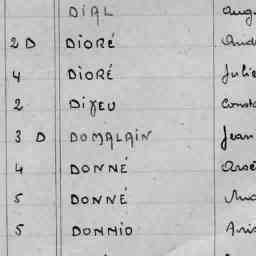 DIAL Aug
2 D DIORÉ And
4 DIORÉ Julie
2 DIJEU Const
3 D DOMALAIN Jean
4 DONNÉ Arsè
5 DONNÉ
5 DONNIO Aris